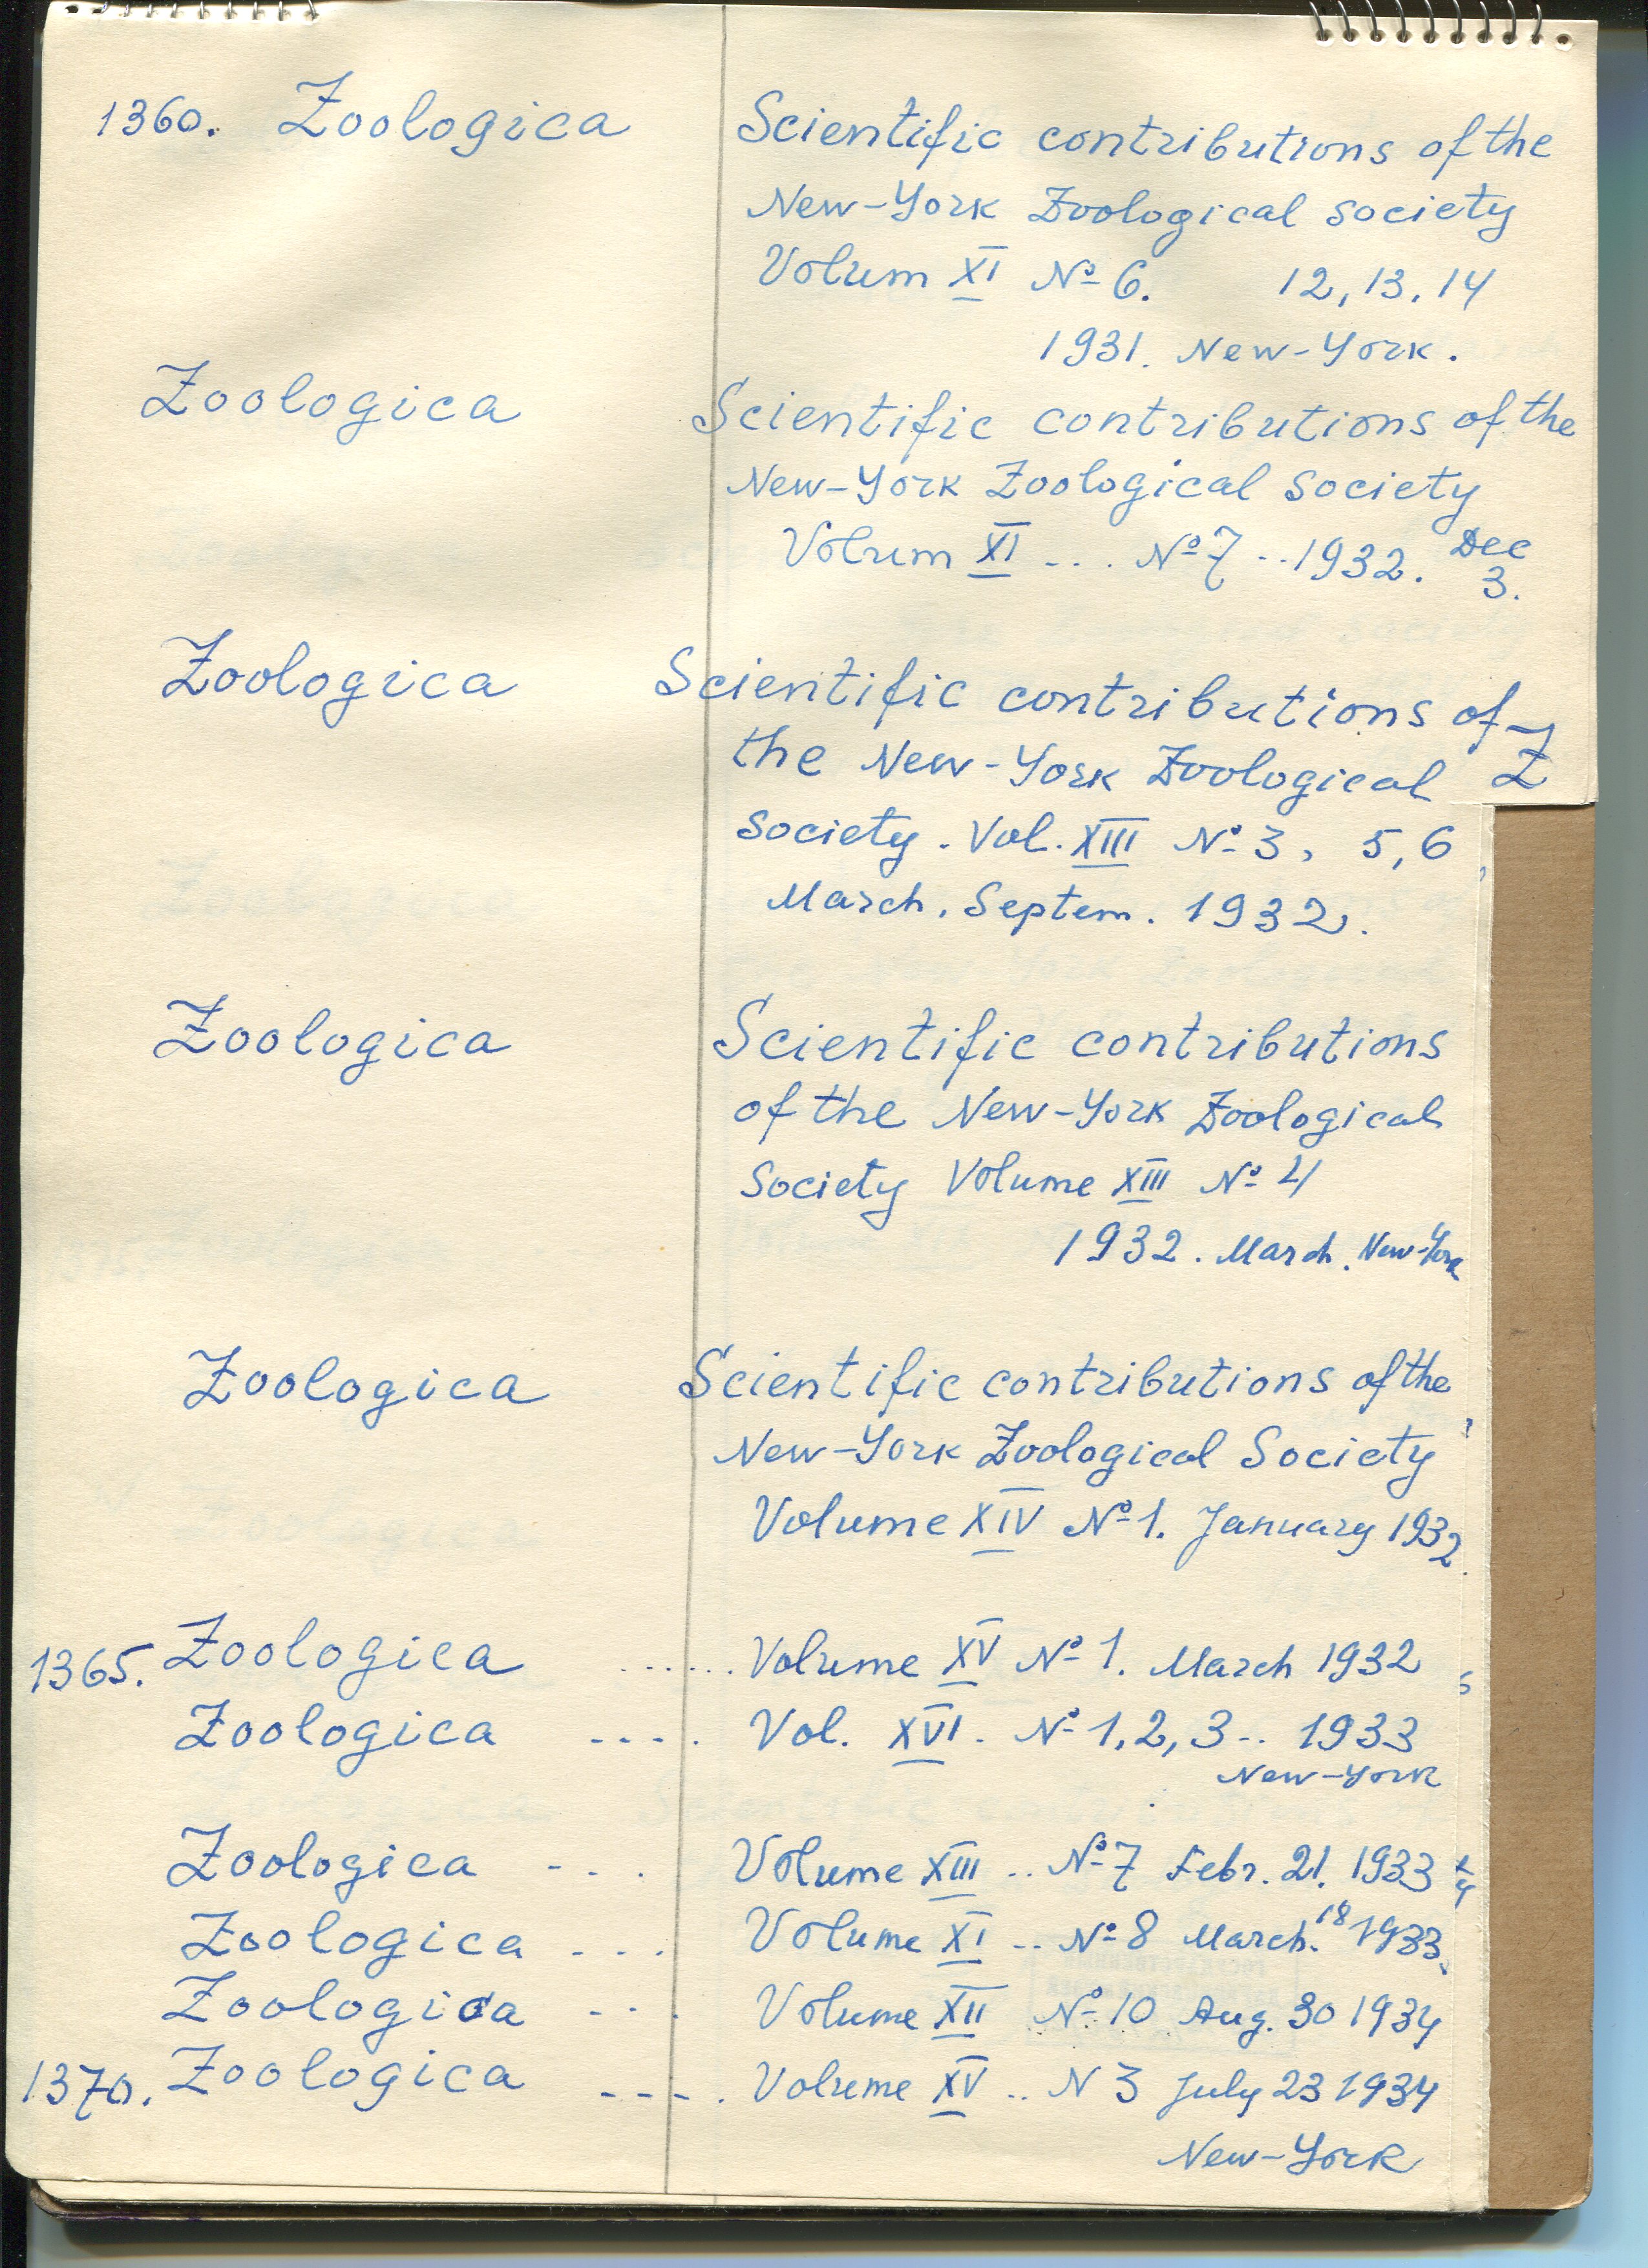 1360. Zoologica Scientific contributions of the
New-York Zoological society
Volum XI № 6. 12, 13, 14
1931. New-York.
Zoologica Scientific contributions of the
New-York Zoological society
Volum XI ... № 7 .. 1932. Dec
3.
Zoologica Scientific contributions of
the New-York Zoological Z
society. Vol. XIII № 3, 5, 6
March. Septem. 1932.
Zoologica Scientific contributions
of the New-York Zoological
Society Volume XIII № 4
1932. March. New-York
Zoologica Scientific contributions of the
New-York Zoological Society
Volume XIV № 1. January 1932.
1365. Zoologica ...... Volume XV № 1. March 1932
Zoologica ---. Vol. XVI. № 1, 2, 3 -. 1933
New-York
Zoologica - - . Volume XIII .. № 7 Febr. 21. 1933
Zoologica - - . Volume XI .. № 8 March. 18 1933.
Zoologica - - . Volume XII № 10 Aug. 30 1934
1370. Zoologica ---. Volume XV .. N 3 July 23 1934
New-York